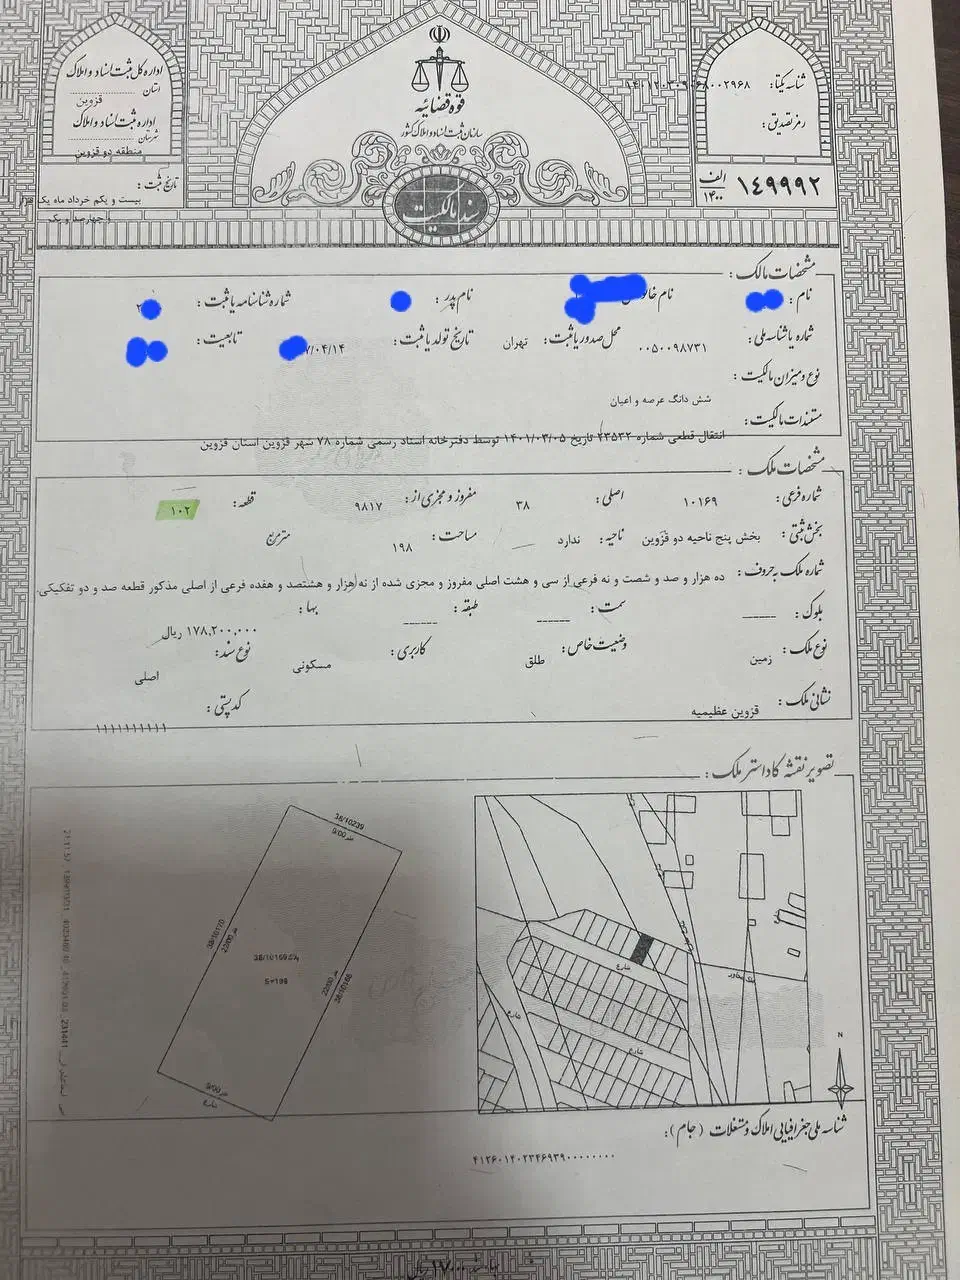 اداره کل ثبت اسناد و املاک
استان
قزوین
اداره ثبت اسناد و املاک
شهرستان
منطقه دو قزوین
تاریخ ثبت :
بیست و یکم خرداد ماه یک هزار
و چهارصد و یک
قوه قضائیه
سازمان ثبت اسناد و املاک کشور
سند مالکیت
شناسه یکتا:
رمز تصدیق:
۱۴۹۹۹۲ الف ۱۴۰۰
مشخصات مالک :
نام : نام خانوادگی نام پدر : شماره شناسنامه یا ثبت :
شماره یا شناسه ملی : ۰۰۵۰۰۹۸۷۳۱ محل صدور یا ثبت : تهران تاریخ تولد یا ثبت : ۷/۰۴/۱۴ تابعیت :
نوع و میزان مالکیت :
شش دانگ عرصه و اعیان
مستندات مالکیت :
انتقال قطعی شماره ۲۳۵۳۲ تاریخ ۱۴۰۱/۰۳/۰۵ توسط دفترخانه اسناد رسمی شماره ۷۸ شهر قزوین استان قزوین
مشخصات ملک :
شماره فرعی : ۱۰۱۶۹ اصلی : ۳۸ مفروز و مجزی از : ۹۸۱۷ قطعه : ۱۰۲
بخش ثبتی : بخش پنج ناحیه دو قزوین ناحیه : ندارد مساحت : ۱۹۸ متر مربع
شماره ملک به حروف : ده هزار و صد و شصت و نه فرعی از سی و هشت اصلی مفروز و مجزی شده از نه هزار و هشتصد و هفده فرعی از اصلی مذکور قطعه صد و دو تفکیکی.
بلوک : ------ سمت : ------ طبقه : ------ بها : ۱۷۸,۲۰۰,۰۰۰ ریال
نوع ملک : زمین وضعیت خاص : طلق کاربری : مسکونی نوع سند : اصلی
نشانی ملک : قزوین عظیمیه کد پستی : ۱۱۱۱۱۱۱۱۱۱
تصویر نقشه کاداستر ملک :
38/10239
9/00 متر
38/10170
22/00 متر
پلاک 38/10169
S=198
22/00 متر
38/10168
9/00 متر
شارع
شارع
شارع
شارع
N
شناسه ملی جغرافیایی املاک و مستغلات ( جام ) :